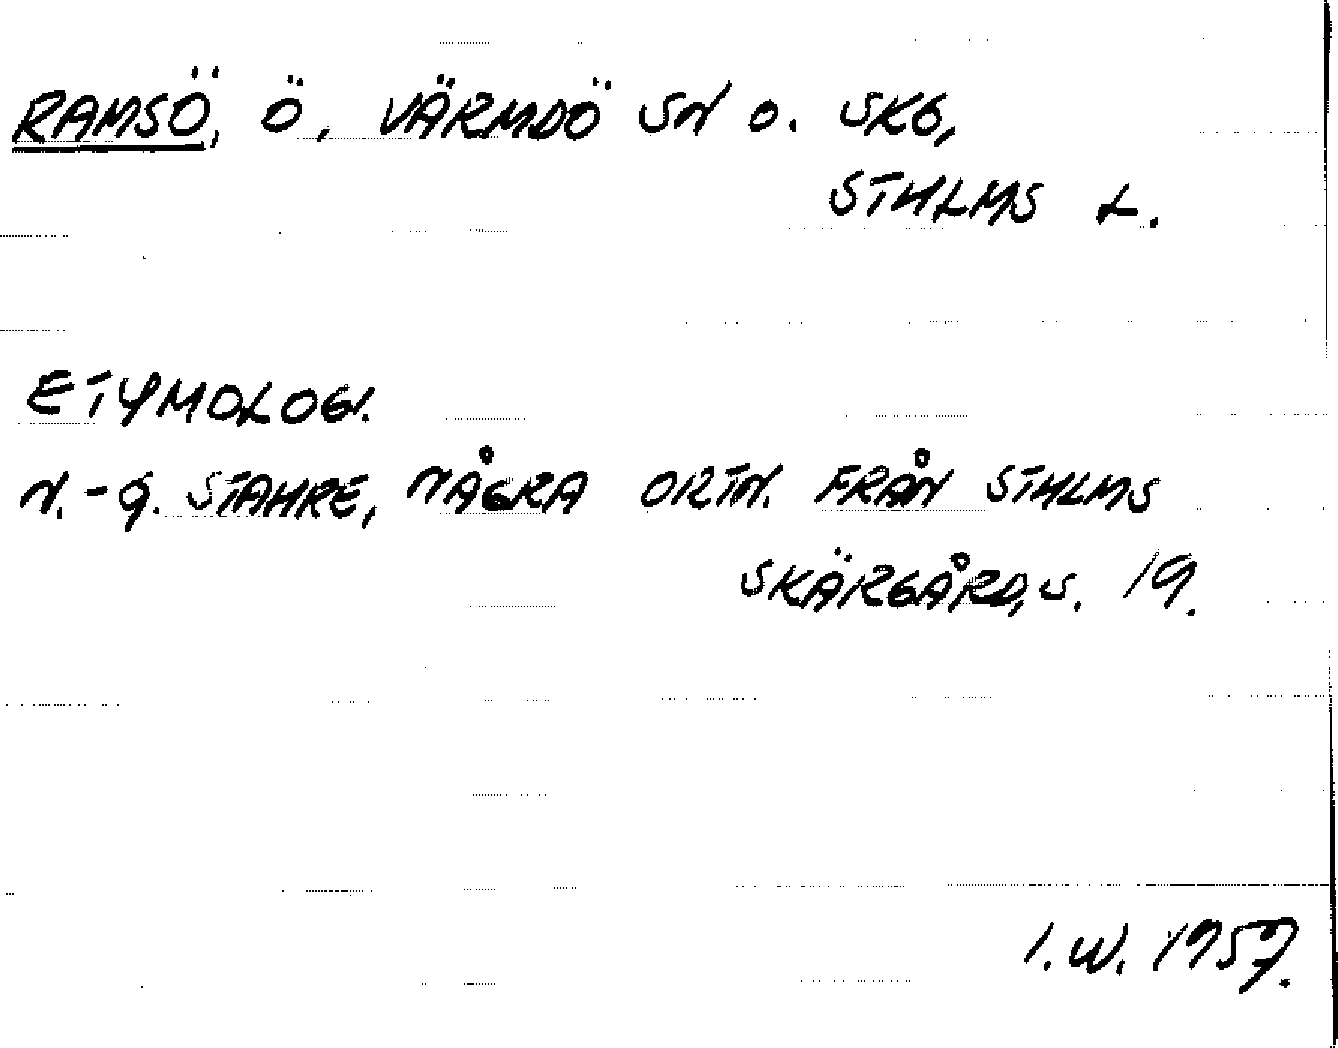 RAMSÖ, Ö, VÄRMDÖ SN O. SKG,
STHLMS L.
ETYMOLOGI.
N.-G. STAHRE, NÅGRA ORTN. FRÅN STHLMS
SKÄRGÅRD, S. 19.
I.W. 1957.